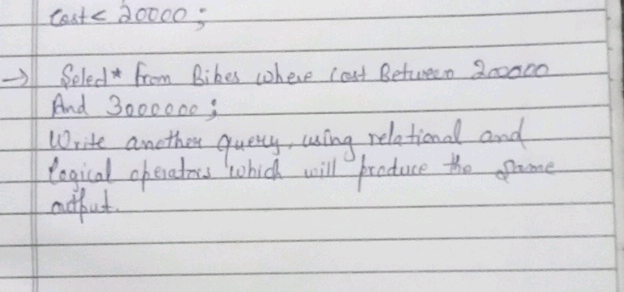 Cost < 20000;
→ Select * from Bikes where cost Between 200000
And 3000000;
Write another query, using relational and
logical operators which will produce the same
output.